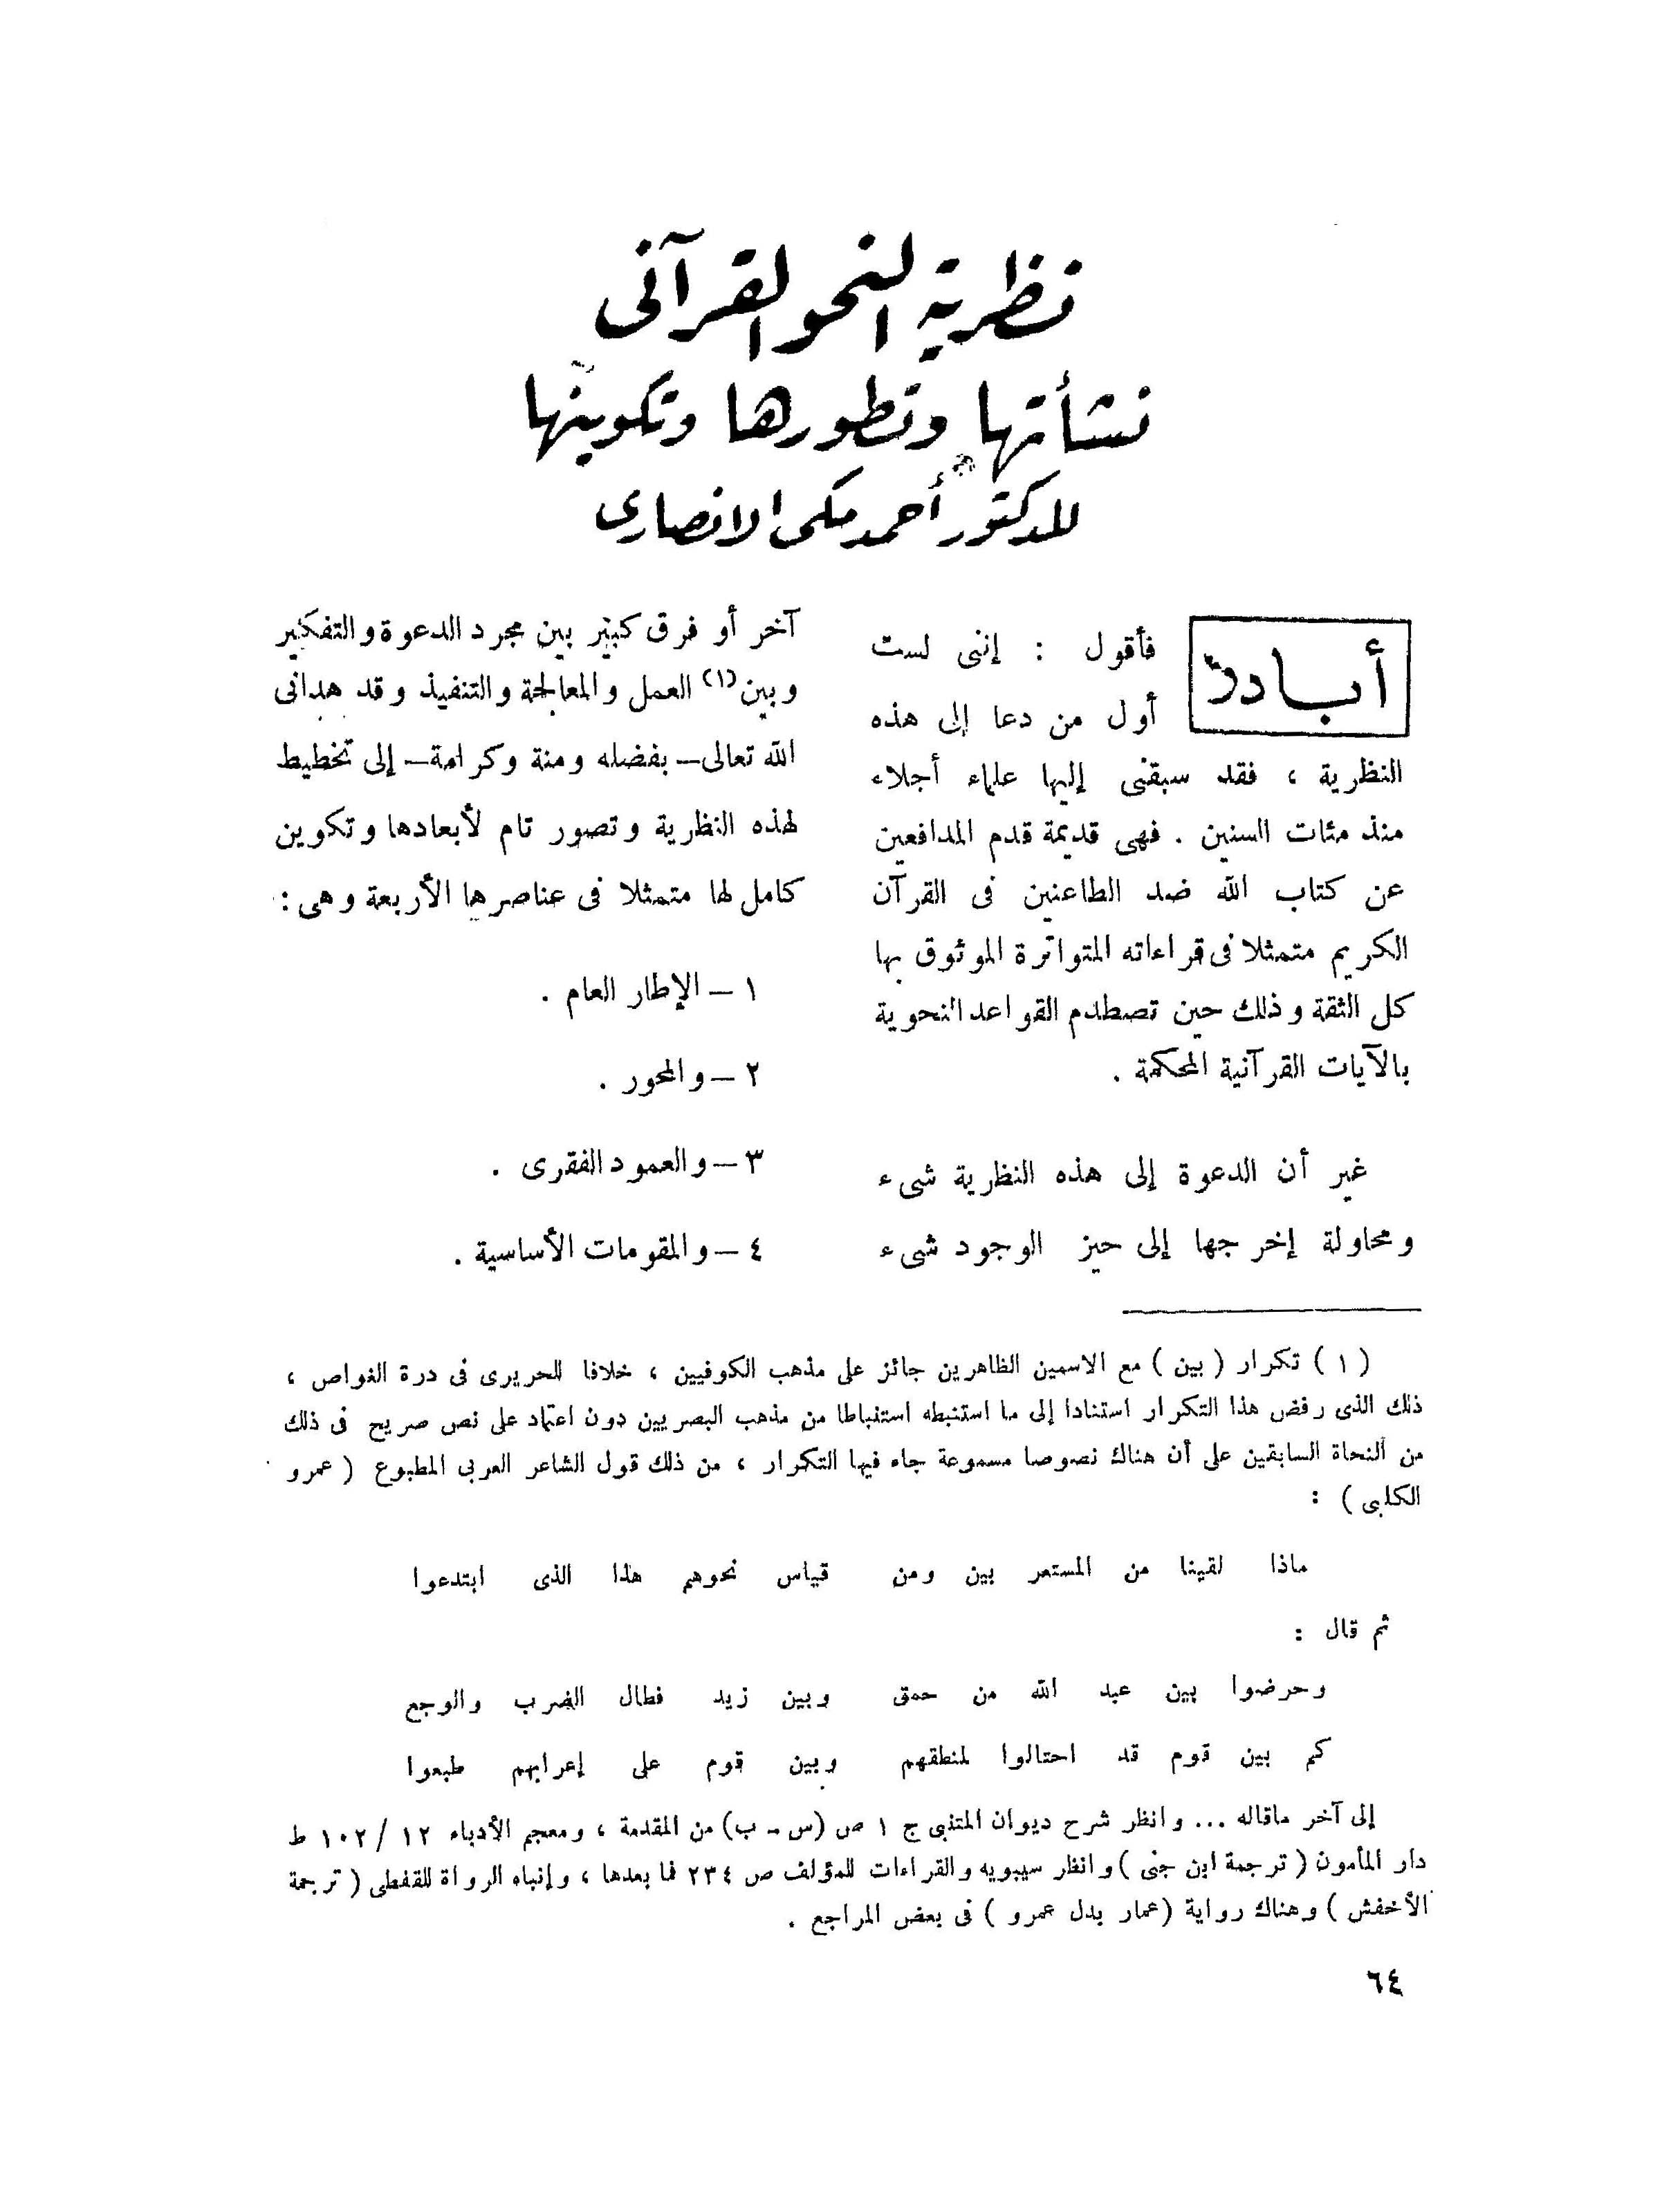 نظرية النحو القرآنى
نشأتها وتطورها وتكوينها
للدكتور أحمد مكى الانصارى
أبادر
فأقول : إننى لست
أول من دعا إلى هذه
النظرية ، فقد سبقنى إليها علماء أجلاء
منذ مئات السنين . فهى قديمة قدم المدافعين
عن كتاب الله ضد الطاعنين فى القرآن
الكريم متمثلا فى قراءاته المتواترة الموثوق بها
كل الثقة وذلك حين تصطدم القواعد النحوية
بالآيات القرآنية المحكمة .
غير أن الدعوة إلى هذه النظرية شىء
ومحاولة إخرجها إلى حيز الوجود شىء
آخر أو فرق كبير بين مجرد الدعوة والتفكير
وبين(١) العمل والمعالجة والتنفيذ وقد هدانى
الله تعالى – بفضله ومنة وكرامة – إلى تخطيط
لهذه النظرية وتصور تام لأبعادها وتكوين
كامل لها متمثلا فى عناصرها الأربعة وهى :
١ – الإطار العام .
٢ – والمحور .
٣ – والعمود الفقرى .
٤ – والمقومات الأساسية .
( ١ ) تكرار ( بين ) مع الاسمين الظاهرين جائز على مذهب الكوفيين ، خلافا للحريرى فى درة الغواص ،
ذلك الذى رفض هذا التكرار استنادا إلى ما استنبطه استنباطا من مذهب البصريين دون اعتماد على نص صريح فى ذلك
من النحاة السابقين على أن هناك نصوصا مسموعة جاء فيها التكرار ، من ذلك قول الشاعر العربى المطبوع ( عمرو
الكلبى ) :
ماذا لقينا من المستعر بين ومن قياس نحوهم هذا الذى ابتدعوا
ثم قال :
وحرضوا بين عبد الله من حمق وبين زيد فطال الضرب والوجع
كم بين قوم قد احتالوا لمنطقهم وبين قوم على إعرابهم طبعوا
إلى آخر ماقاله ... وانظر شرح ديوان المتنبى ج ١ ص (س – ب) من المقدمة ، ومعجم الأدباء ١٢ / ١٠٢ ط
دار المأمون ( ترجمة ابن جنى ) وانظر سيبويه والقراءات للمؤلف ص ٢٣٤ فما بعدها ، وإنباه الرواة للقفطى ( ترجمة
الأخفش ) وهناك رواية (عمار بدل عمرو ) فى بعض المراجع .
٦٤